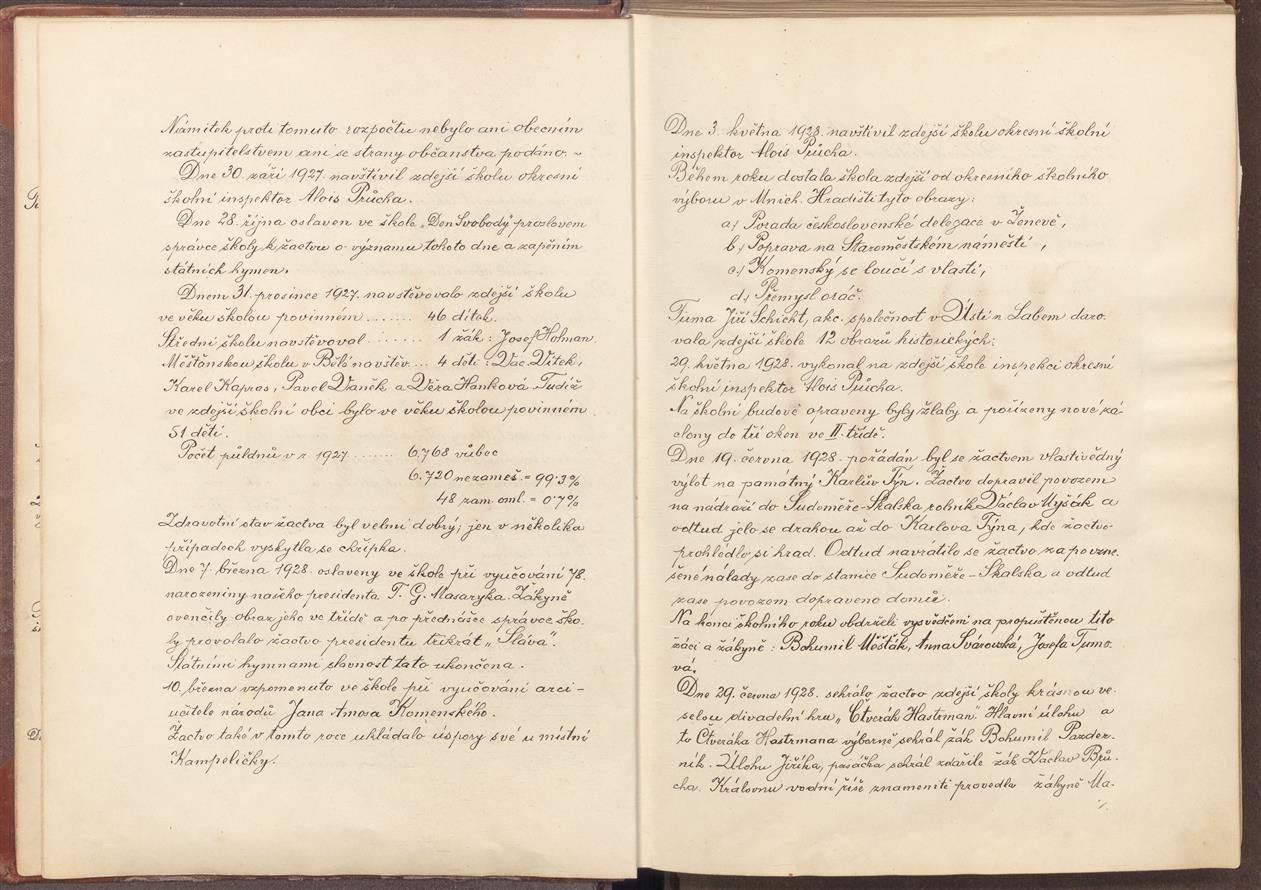 Námitek proti tomuto rozpočtu nebylo ani obecním
zastupitelstvem ani se strany občanstva podáno. ~
Dne 30. září 1927. navštívil zdejší školu okresní
školní inspektor Alois Průcha.
Dne 28. října oslaven ve škole „Den Svobody" proslovem
správce školy k žactvu o významu tohoto dne a zapěním
státních hymen.
Dnem 31. prosince 1927. navštěvovalo zdejší školu
ve věku školou povinném ........ 46 dítek.
Střední školu navštěvoval ........ 1 žák: Josef Holman.
Měšťanskou školu v Bělé navštěv.... 4 děti: Vác. Vítek,
Karel Kapras, Pavel Vaněk a Věra Hanková. Tudíž
ve zdejší školní obci bylo ve věku školou povinném
51 dětí.
Počet půldnů v r. 1927 ........ 6.768 vůbec
6.720 nezameš. = 99.3%
48 zam. oml. = 0.7%
Zdravotní stav žactva byl velmi dobrý; jen v několika
případech vyskytla se chřipka.
Dne 7. března 1928. oslaveny ve škole při vyučování 78.
narozeniny našeho presidenta T. G. Masaryka. Žákyně
ovenčily obraz jeho ve třídě a po přednášce správce ško-
ly provolalo žactvo presidentu třikrát „Sláva".
Státními hymnami slavnost tato ukončena.
10. března vzpomenuto ve škole při vyučování arci-
učitele národů Jana Amosa Komenského.
Žactvo také v tomto roce ukládalo úspory své u místní
Kampeličky.
Dne 3. května 1928. navštívil zdejší školu okresní školní
inspektor Alois Průcha.
Během roku dostala škola zdejší od okresního školního
výboru v Mnich. Hradišti tyto obrazy:
a) Porada československé delegace v Ženevě,
b) Poprava na Staroměstském náměstí,
c) Komenský se loučí s vlastí,
d) Přemysl oráč.
Firma Jiří Schicht, akc. společnost v Ústí n Labem daro-
vala zdejší škole 12 obrazů historických:
29. května 1928. vykonal na zdejší škole inspekci okresní
školní inspektor Alois Průcha.
Na školní budově opraveny byly žlaby a pořízeny nové zá-
clony do tří oken ve II. třídě.
Dne 19. června 1928. pořádán byl se žactvem vlastivědný
výlet na památný Karlův Týn. Žactvo dopravil povozem
na nádraží do Sudoměře-Skalska rolník Václav Myšák a
odtud jelo se drahou až do Karlova Týna, kde žactvo
prohlédlo si hrad. Odtud navrátilo se žactvo za povzne-
šené nálady zase do stanice Sudoměře-Skalska a odtud
zase povozem dopraveno domů.
Na konci školního roku obdrželi vysvědčení na propuštěnou tito
žáci a žákyně: Bohumil Mošták, Anna Svárovská, Josefa Tumo-
vá.
Dne 29. června 1928. sehrálo žactvo zdejší školy krásnou ve-
selou divadelní hru „Čtverák Hastrman". Hlavní úlohu a
to Čtveráka Hastrmana výborně sehrál žák Bohumil Pazder-
ník. Úlohu Jiříka, pasáčka sehrál zdařile žák Václav Brů-
cha. Královnu vodní říše znamenitě provedla žákyně Ma-
./.